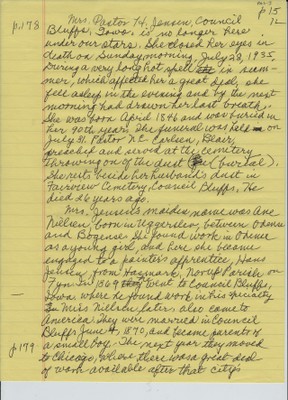 p15
12
p.178 Mrs. Pastor H. Jensen, Council
Bluffs, Iowa, is no longer here
under our stars. She closed her eyes in
death on Sunday morning July 28, 1935.
During a very long hot spell in sum-
mer, which affected her a great deal, she
fell asleep in the evening and by the next
morning had drawn her last breath.
She was born April 1846 and was buried in
her 90th year. The funeral was held on
July 31. Pastor N.C. Carlsen, Blair,
preached and served at the cemetery
throwing on of the dust (burial).
She rests beside her husband's dust in
Fairview Cemetery, Council Bluffs. He
died 26 years ago.
Mrs. Jensen's maiden name was Ane
Nielsen, born in between Odense
and Bogense. She found work in Odense
as a young girl, and here she became
engaged to a painter's apprentice, Hans
Jensen, from Parish on
Fyn. In 1869 went to Council Bluffs,
Iowa, where he found work in his specialty
Miss Nielsen, later, also came to
America. They were married in Council
Bluffs June 4, 1870, and became parents of
a small boy. The next year they moved
p.179 to Chicago, where there was a great deal
of work available after that city's